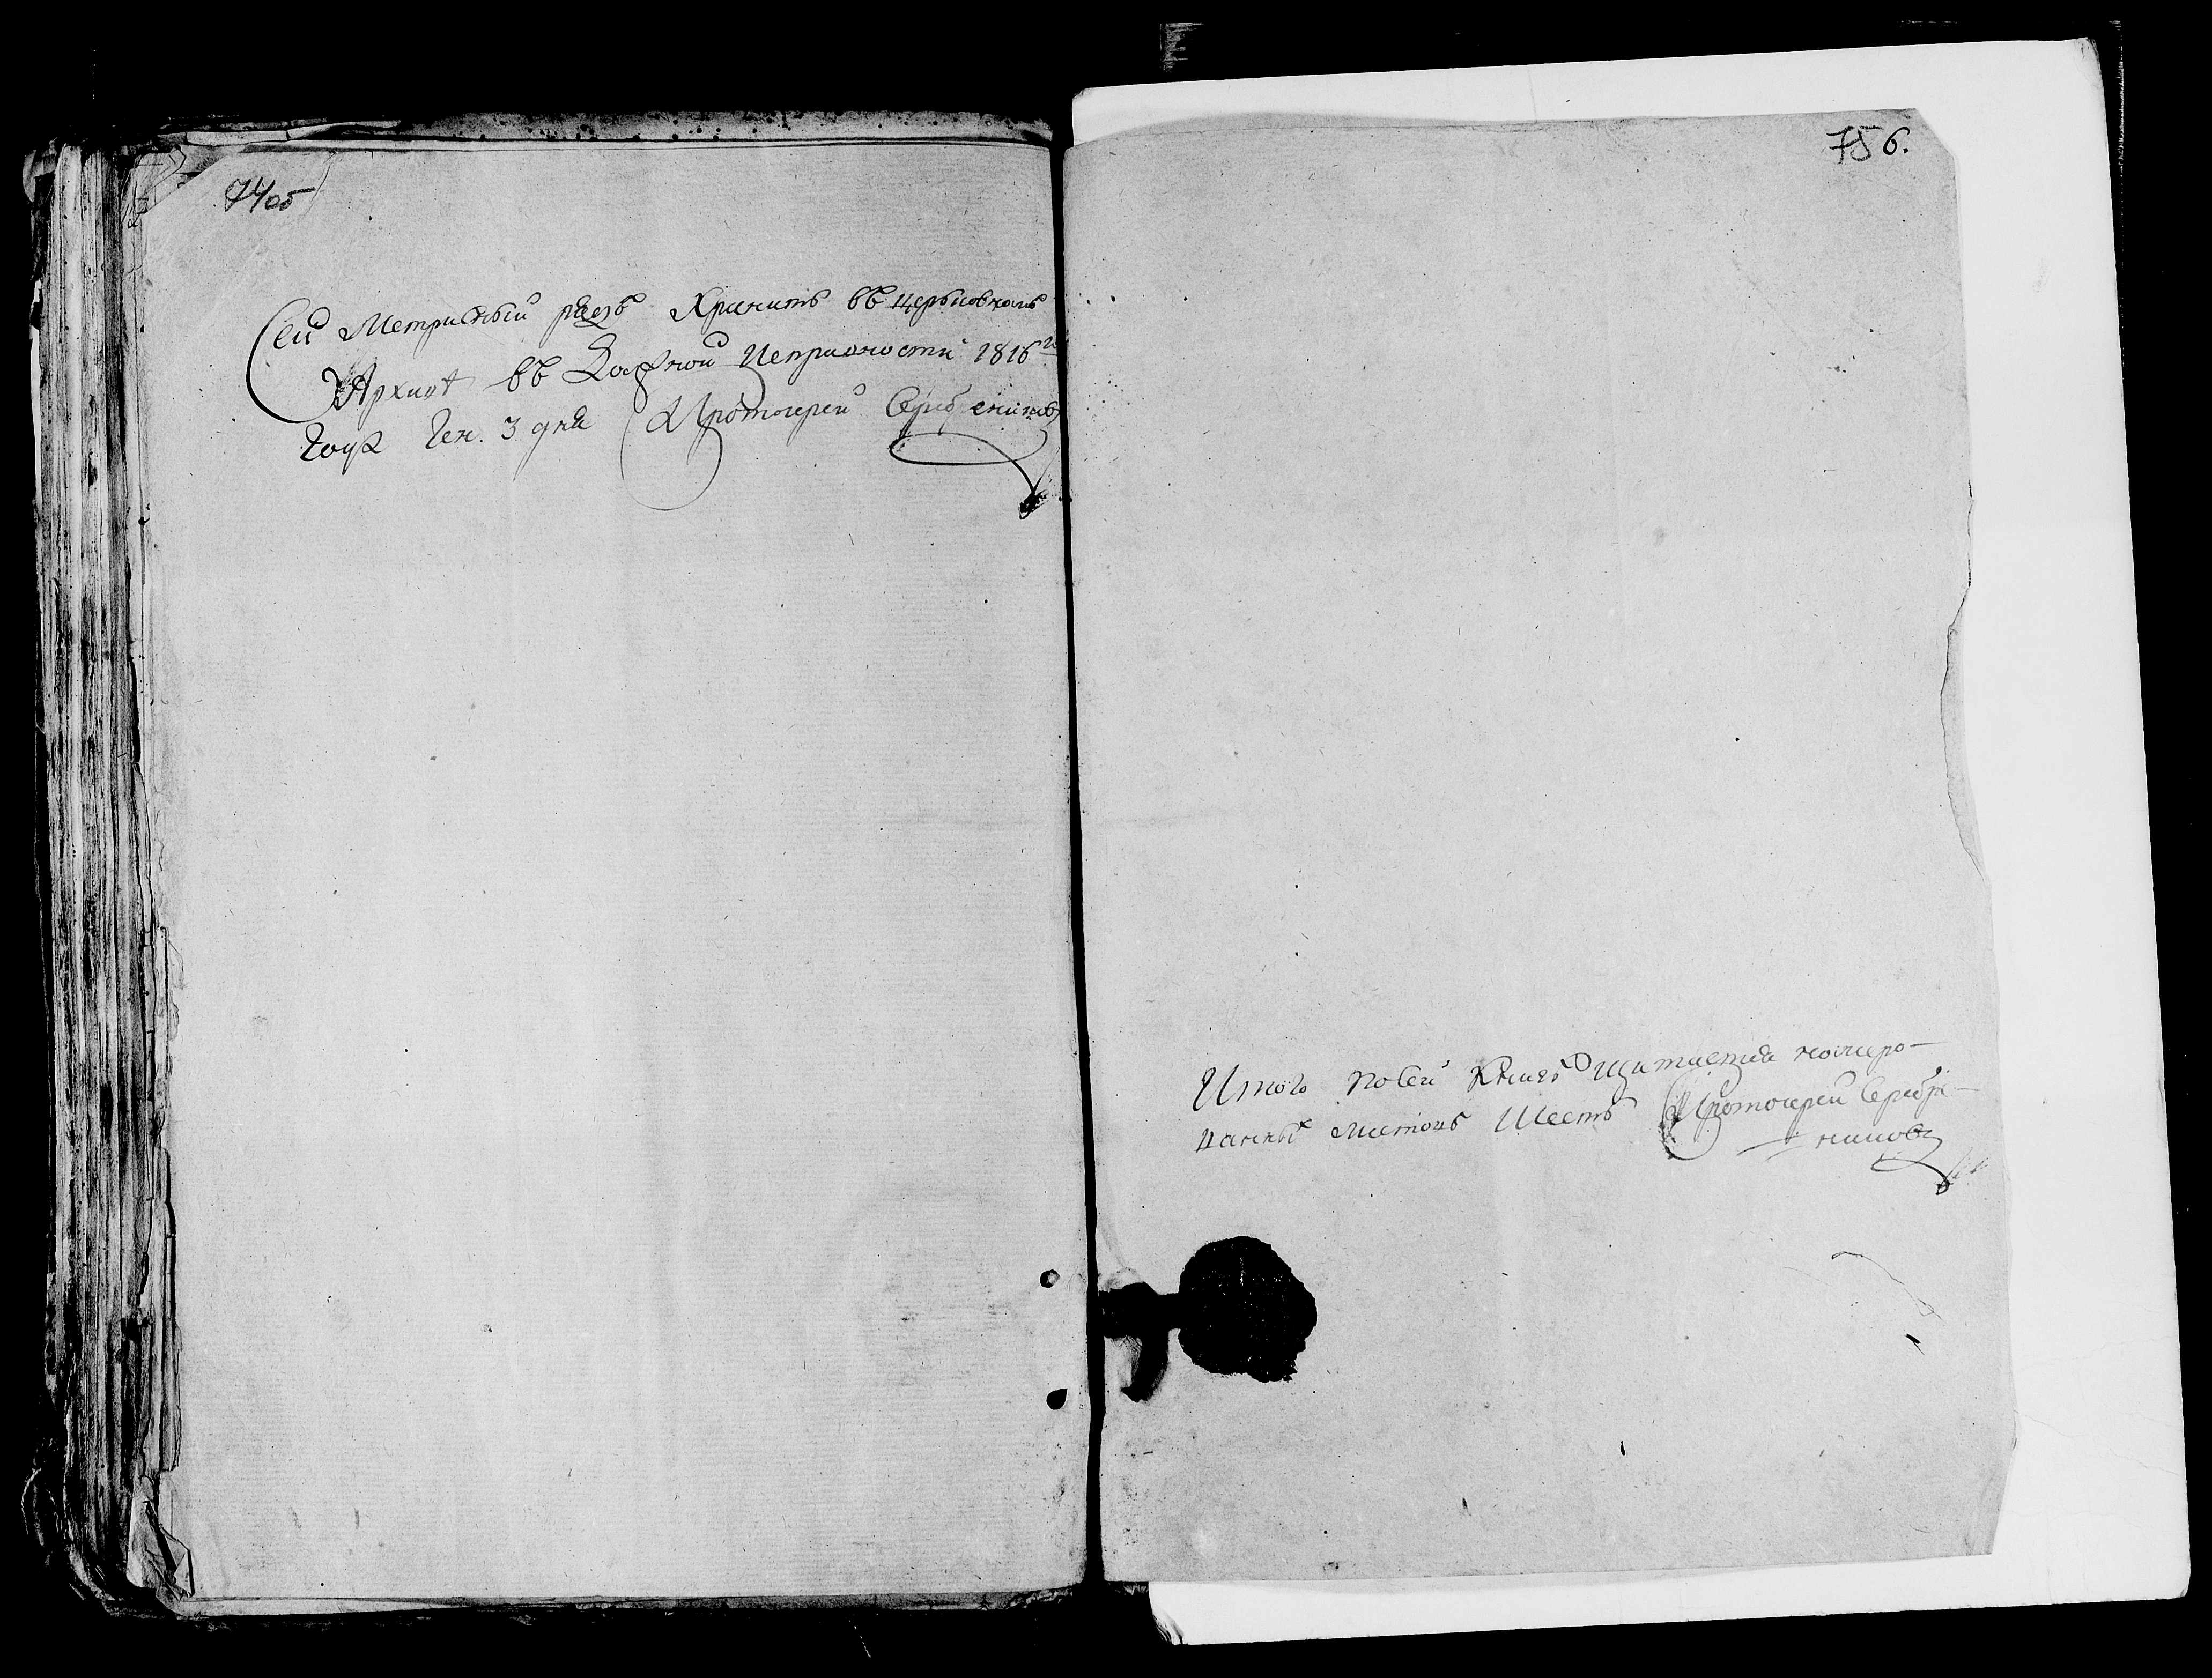 74об
Сей Метричный разъ Хранить въ церьковномъ
Архивѣ въ Должной Исправности 1816го
Года Ген. 3 дня Протоиерей Серебрениковъ
75 6.
Итого по сей Книгѣ щитается номеро-
ванныхъ листовъ Шесть Протоиерей Серебре-
никовъ